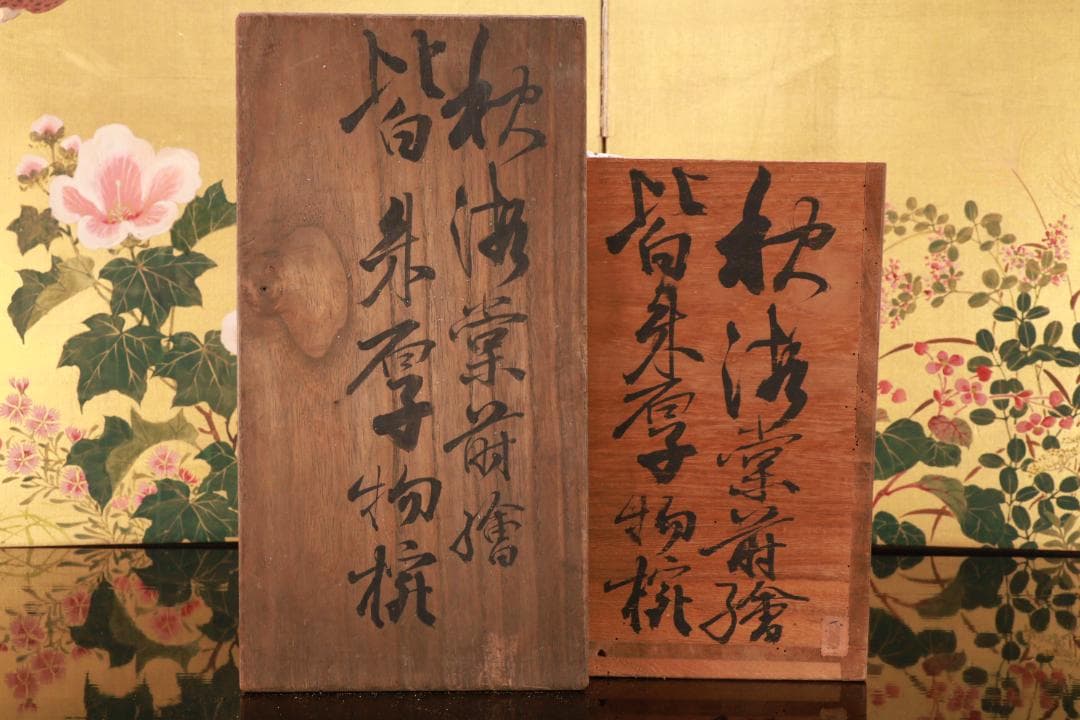 秋海棠蒔繪
皆朱厚物椀
秋海棠蒔繪
皆朱厚物椀